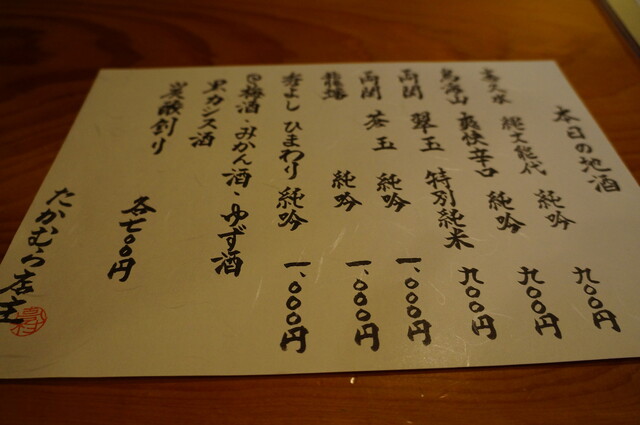 本日の地酒
喜久水 縄文能代 純吟 九〇〇円
鳥海山 爽快辛口 純吟 九〇〇円
両関 翠玉 特別純米 九〇〇円
両関 玉 純吟 一、〇〇〇円
純吟 一、〇〇〇円
秀よし ひまわり 純吟 一、〇〇〇円
梅酒・みかん酒・ゆず酒
黒カシス酒
炭酸割り 各七〇〇円
たかむら店主